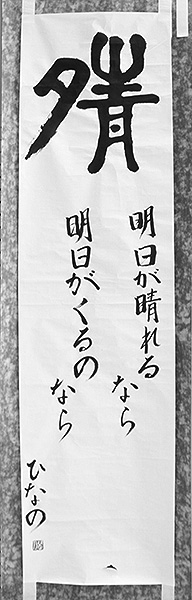 晴
明日が晴れる
なら
明日がくるの
なら
ひなの